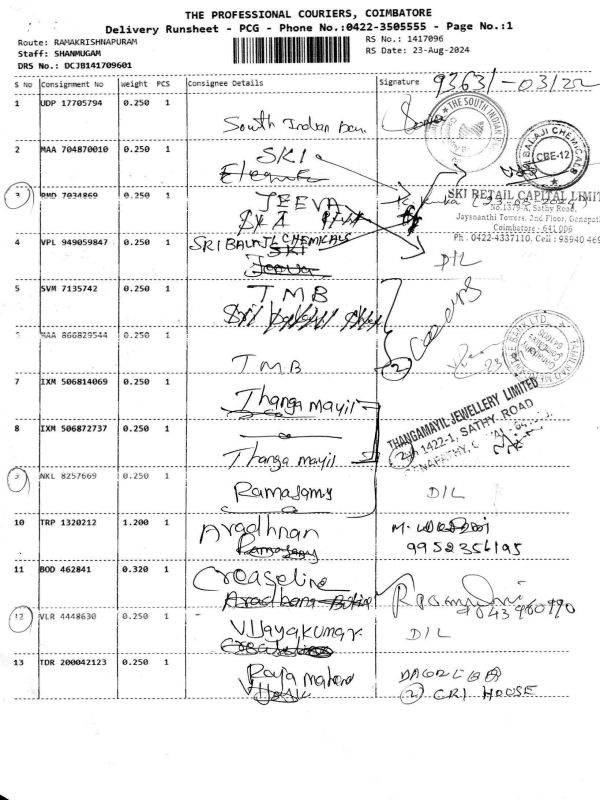 THE PROFESSIONAL COURIERS, COIMBATORE
Delivery Runsheet - PCG - Phone No.:0422-3505555 - Page No.:1
Route: RAMAKRISHNAPURAM
Staff: SHANMUGAM
DRS No.: DCJB141709601
RS No.: 1417096
RS Date: 23-Aug-2024
S No Consignment No Weight PCS Consignee Details Signature
93631-03122
1 UDP 17705794 0.250 1 South Indian Ban
THE SOUTH INDIAN
BALAJI CHEMICALS
CBE-12
2 MAA 704870010 0.250 1 SKI
3 RMD 7034869 0.250 1 JEEVA
SKI RETAIL CAPITAL LIMIT
No.1379-A, Sathy Road,
Jaysnanthi Towers, 2nd Floor, Ganapat
Coimbatore - 641 006
Ph : 0422-4337110, Cell : 98940 469
4 VPL 949059847 0.250 1 SRI BALAJI CHEMICALS
SKI
Jeeva
D/L
5 SVM 7135742 0.250 1 TMB
6 MAA 866829544 0.250 1 TMB
2 Covers
23
7 IXM 506814069 0.250 1 Thanga mayil
THANGAMAYIL JEWELLERY LIMITED
1422-1, SATHY ROAD
8 IXM 506872737 0.250 1 Thanga mayil
2
9 NKL 8257669 0.250 1 Ramasamy D/L
10 TRP 1320212 1.200 1 Aradhnan
Ramasamy
9952356195
11 BOD 462841 0.320 1 Creaseline
12 VLR 4448630 0.250 1 Vijayakumar D/L
13 TDR 200042123 0.250 1 Raja mahend
2 CRI HOUSE